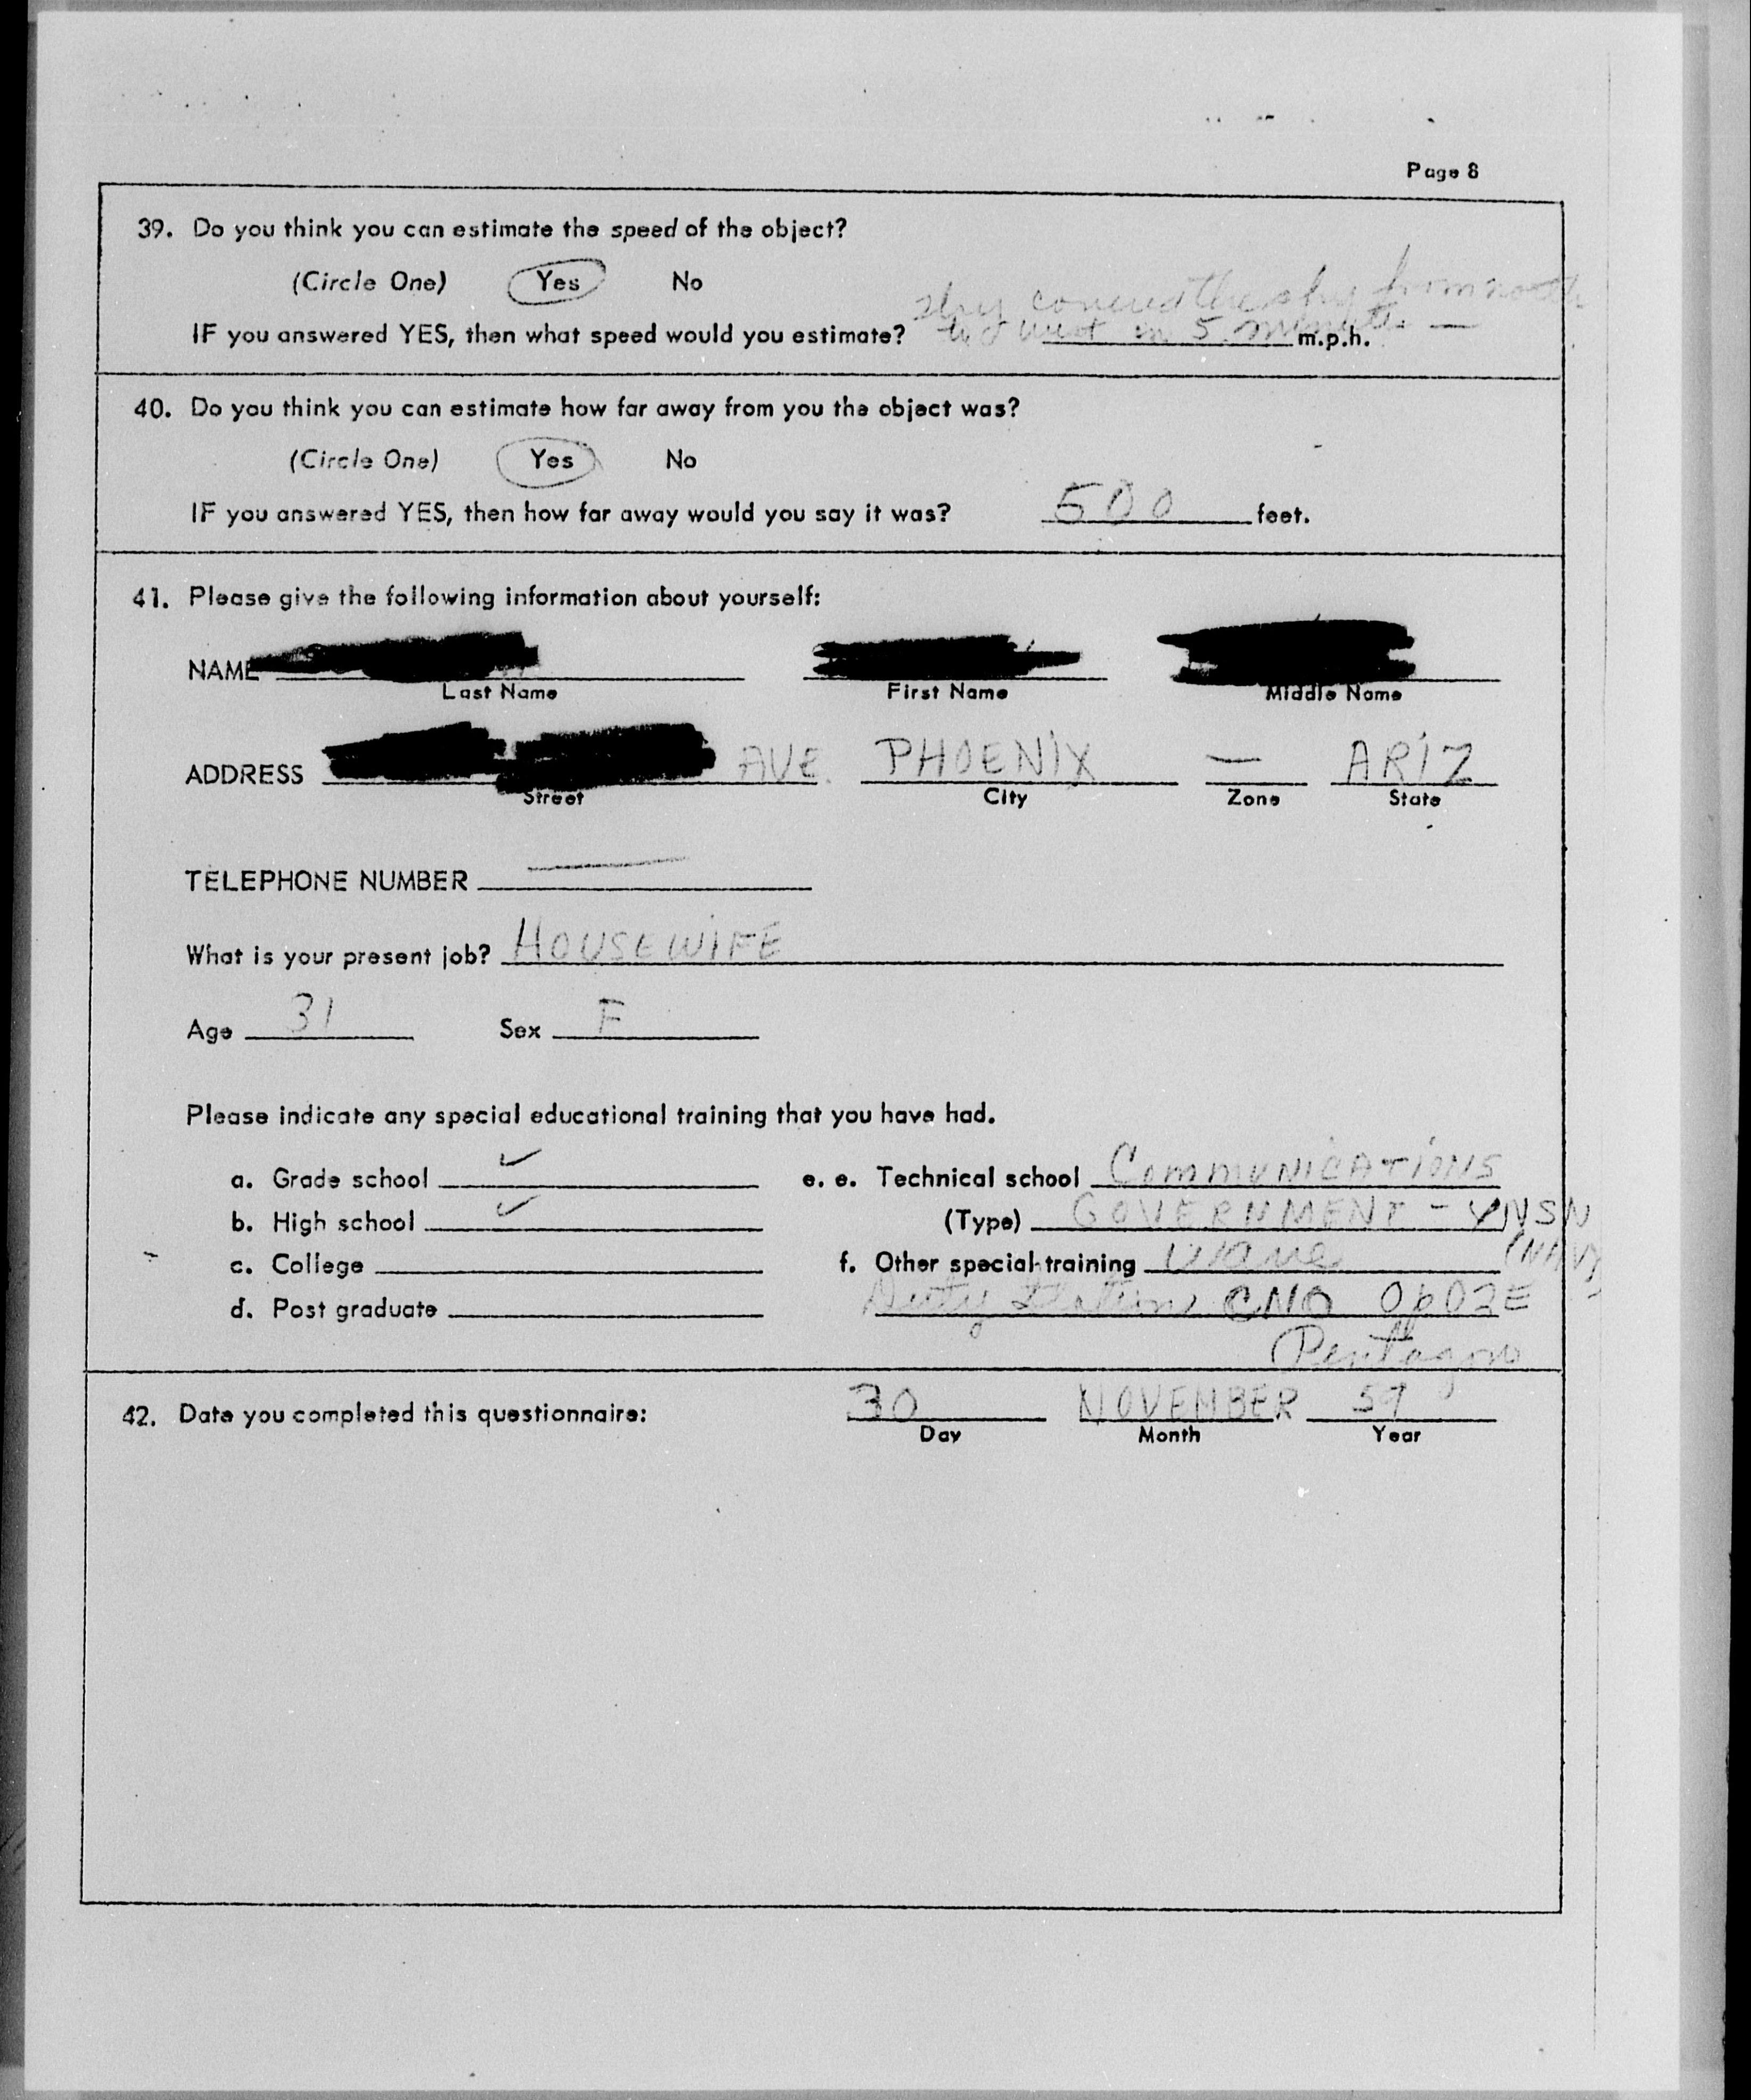 Page 8
39. Do you think you can estimate the speed of the object?
(Circle One) Yes No
they covered the sky from north
to west in 5 minutes —
IF you answered YES, then what speed would you estimate? m.p.h.
40. Do you think you can estimate how far away from you the object was?
(Circle One) Yes No
IF you answered YES, then how far away would you say it was? 500 feet.
41. Please give the following information about yourself:
NAME
Last Name First Name Middle Name
ADDRESS AVE. PHOENIX — ARIZ
Street City Zone State
TELEPHONE NUMBER —
What is your present job? HOUSEWIFE
Age 31 Sex F
Please indicate any special educational training that you have had.
a. Grade school ✓ e. e. Technical school COMMUNICATIONS
b. High school ✓ (Type) GOVERNMENT - YNSN
(NAVY)
c. College f. Other special training Wave
d. Post graduate Duty Station CNO Op02E
Pentagon
42. Date you completed this questionnaire: 30 NOVEMBER 59
Day Month Year